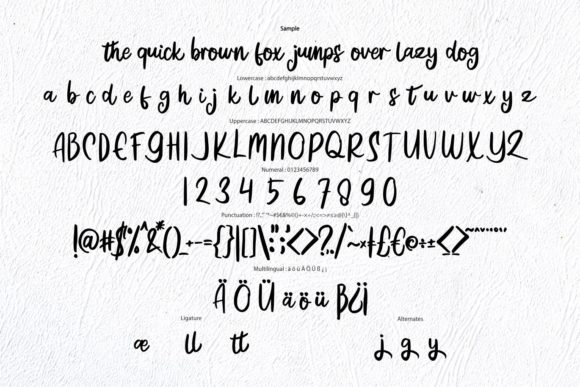 Sample
the quick brown fox jumps over lazy dog
Lowercase : abcdefghijklmnopqrstuvwxyz
a b c d e f g h i j k l m n o p q r s t u v w x y z
Uppercase : ABCDEFGHIJKLMNOPQRSTUVWXYZ
ABCDEFGHIJKLMNOPQRSTUVWXYZ
Numeral : 0123456789
1 2 3 4 5 6 7 8 9 0
Multilingual : ä ö ü Ä Ö Ü ß ¿ ¡
Ä Ö Ü ä ö ü ß ¿ ¡
Ligature Alternates
æ ll tt j g y